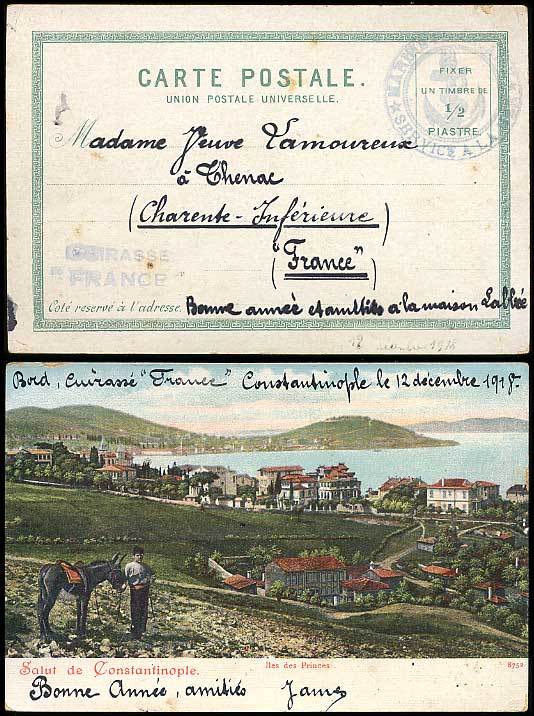 CARTE POSTALE.
UNION POSTALE UNIVERSELLE.
FIXER
UN TIMBRE DE
1/2
PIASTRE.
SERVICE A LA
Madame Veuve Lamoureux
à Thenac
(Charente-Inférieure)
("France")
CUIRASSE
FRANCE
Coté reservé à l'adresse.
Bonne année et amitiés à la maison
12 décembre 1918
Bord, Cuirassé "France" Constantinople le 12 décembre 1918
Salut de Constantinople.
Iles des Princes
8752
Bonne Année, amitiés